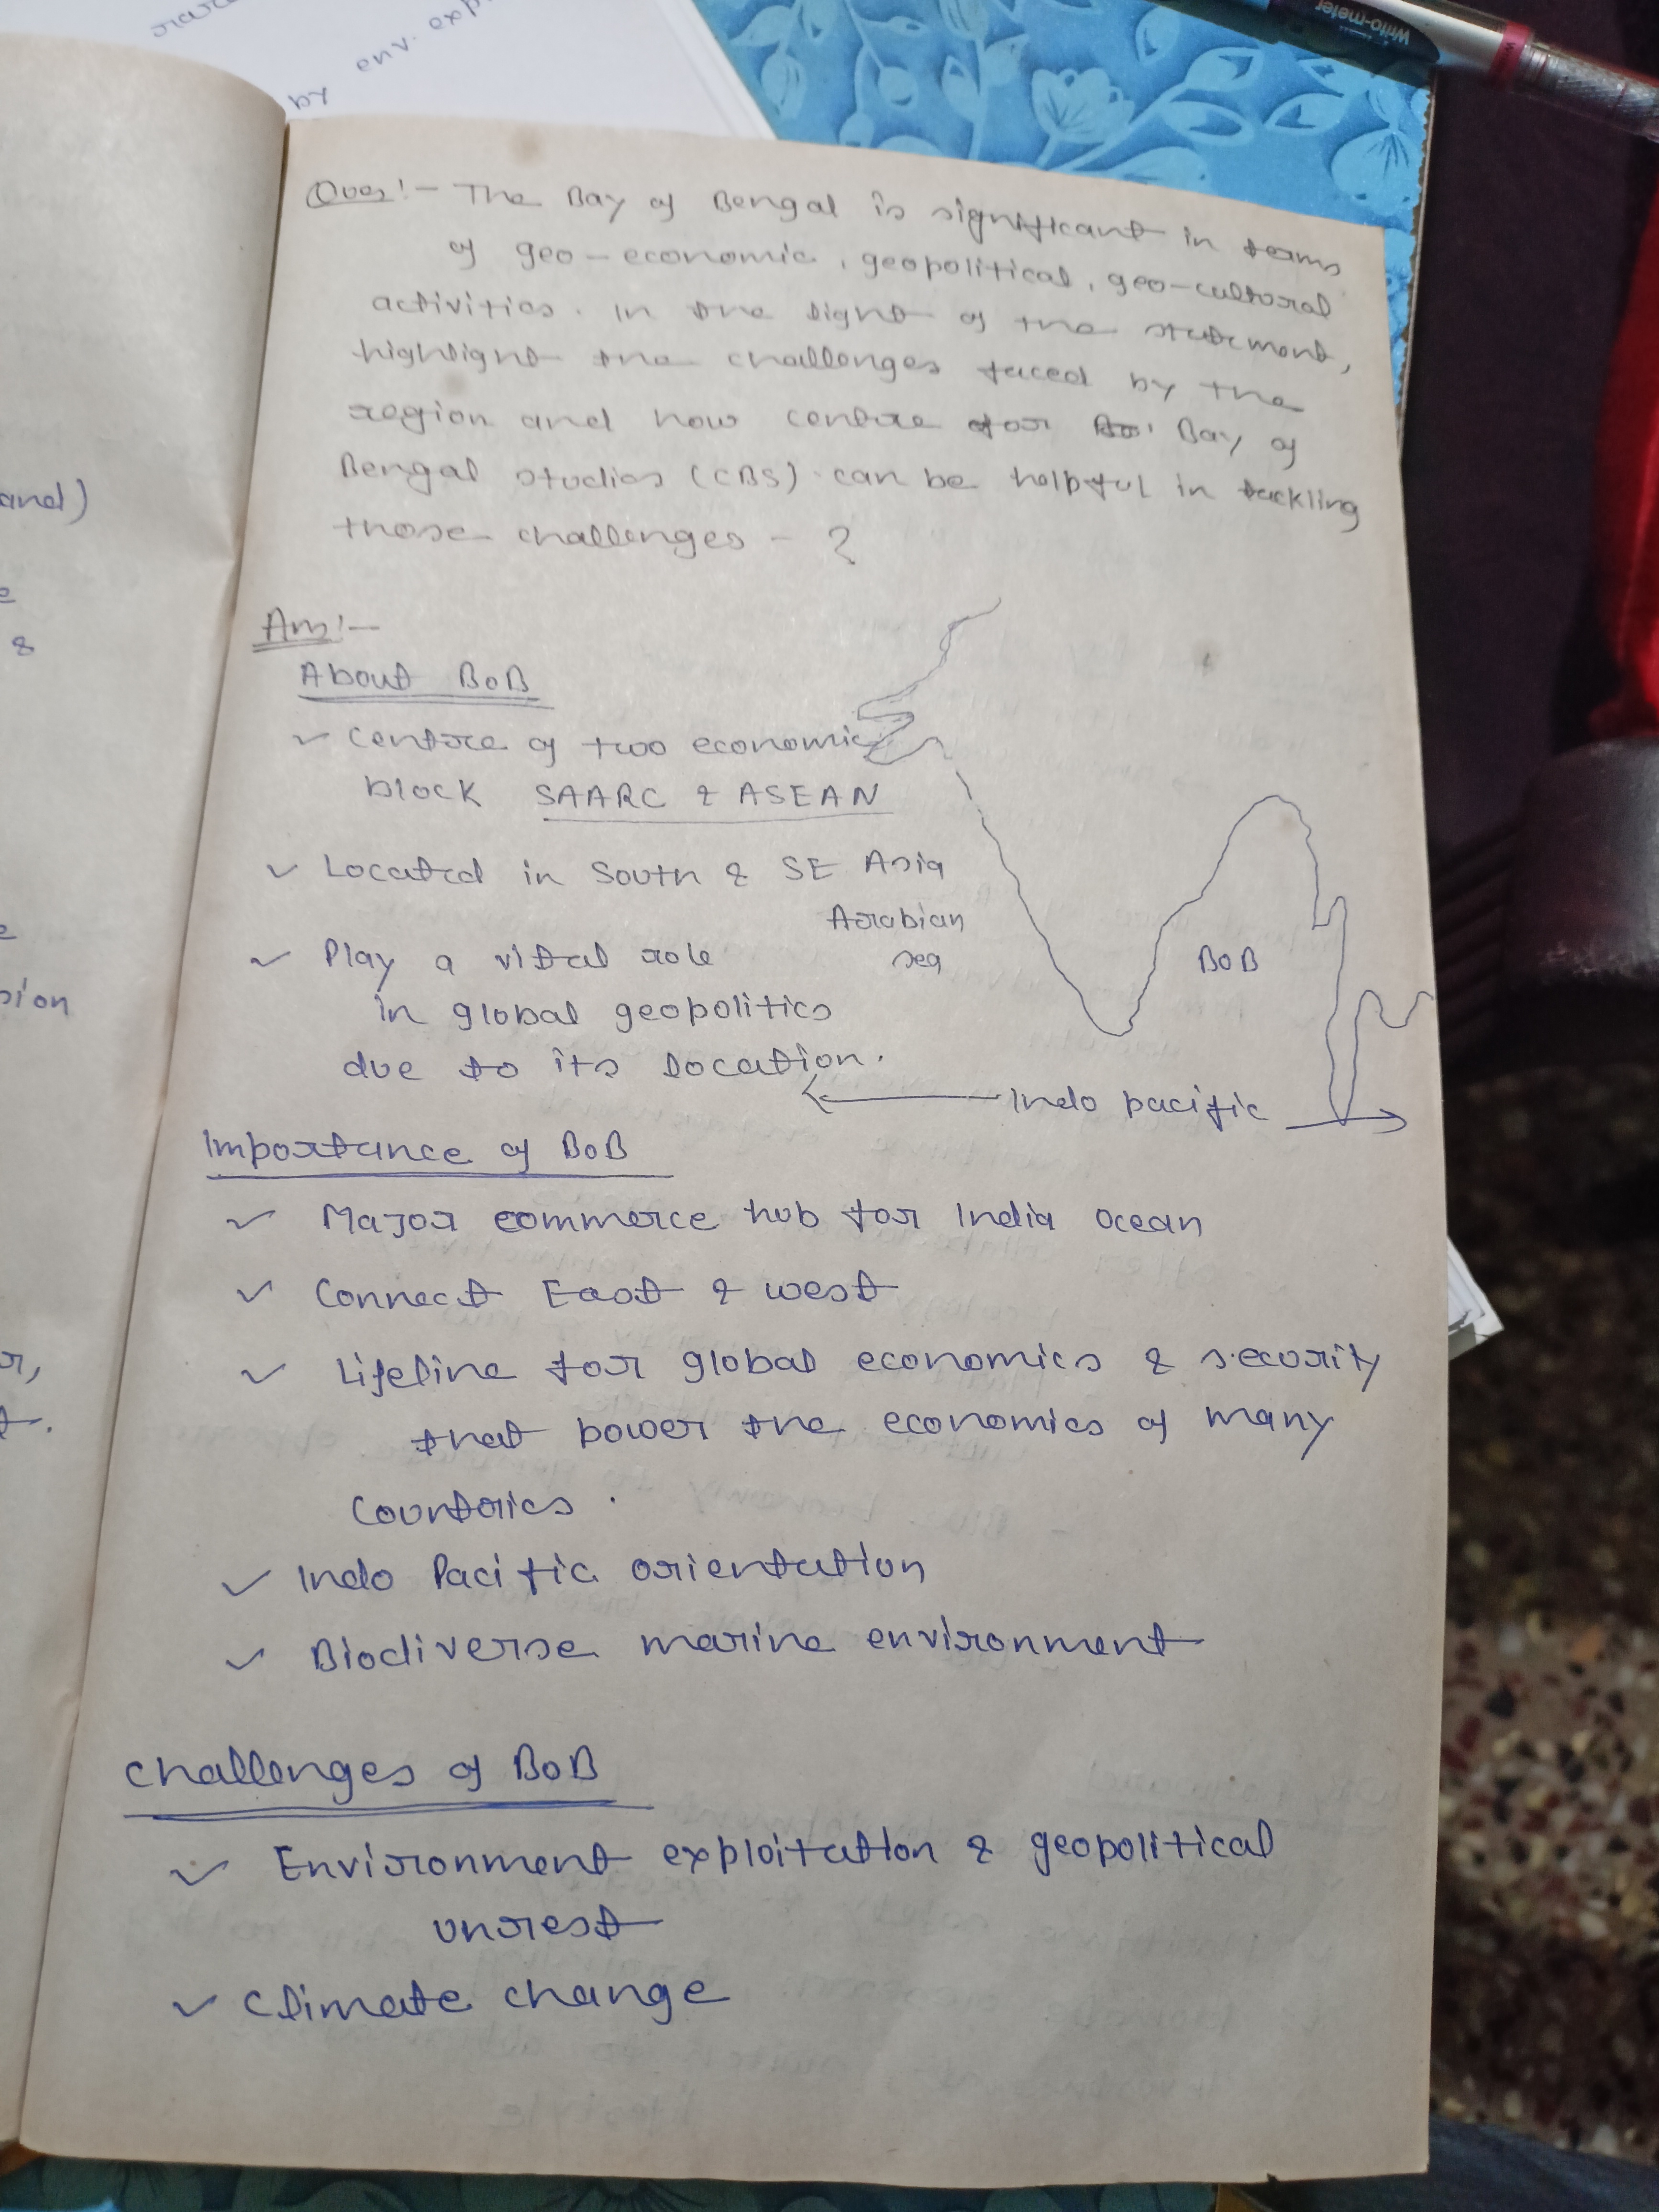 env. exp
by
and)
&
sion
Ques:- The Bay of Bengal is significant in terms
of geo-economic, geopolitical, geo-cultural
activities. In the light of the statement,
highlight the challenges faced by the
region and how centre for Bay of
Bengal studies (CBS) can be helpful in tackling
those challenges - ?
Ans:-
About BoB
✓ Centre of two economic
block SAARC & ASEAN
✓ Located in South & SE Asia
Arabian
sea
BoB
✓ Play a vital role
in global geopolitics
due to its location.
Indo pacific
Importance of BoB
✓ Major commerce hub for India ocean
✓ Connect East & west
✓ Lifeline for global economics & security
that power the economics of many
Countries.
✓ Indo Pacific orientation
✓ Biodiverse marine environment
Challenges of BoB
✓ Environment exploitation & geopolitical
unrest
✓ Climate change
Writo-meter